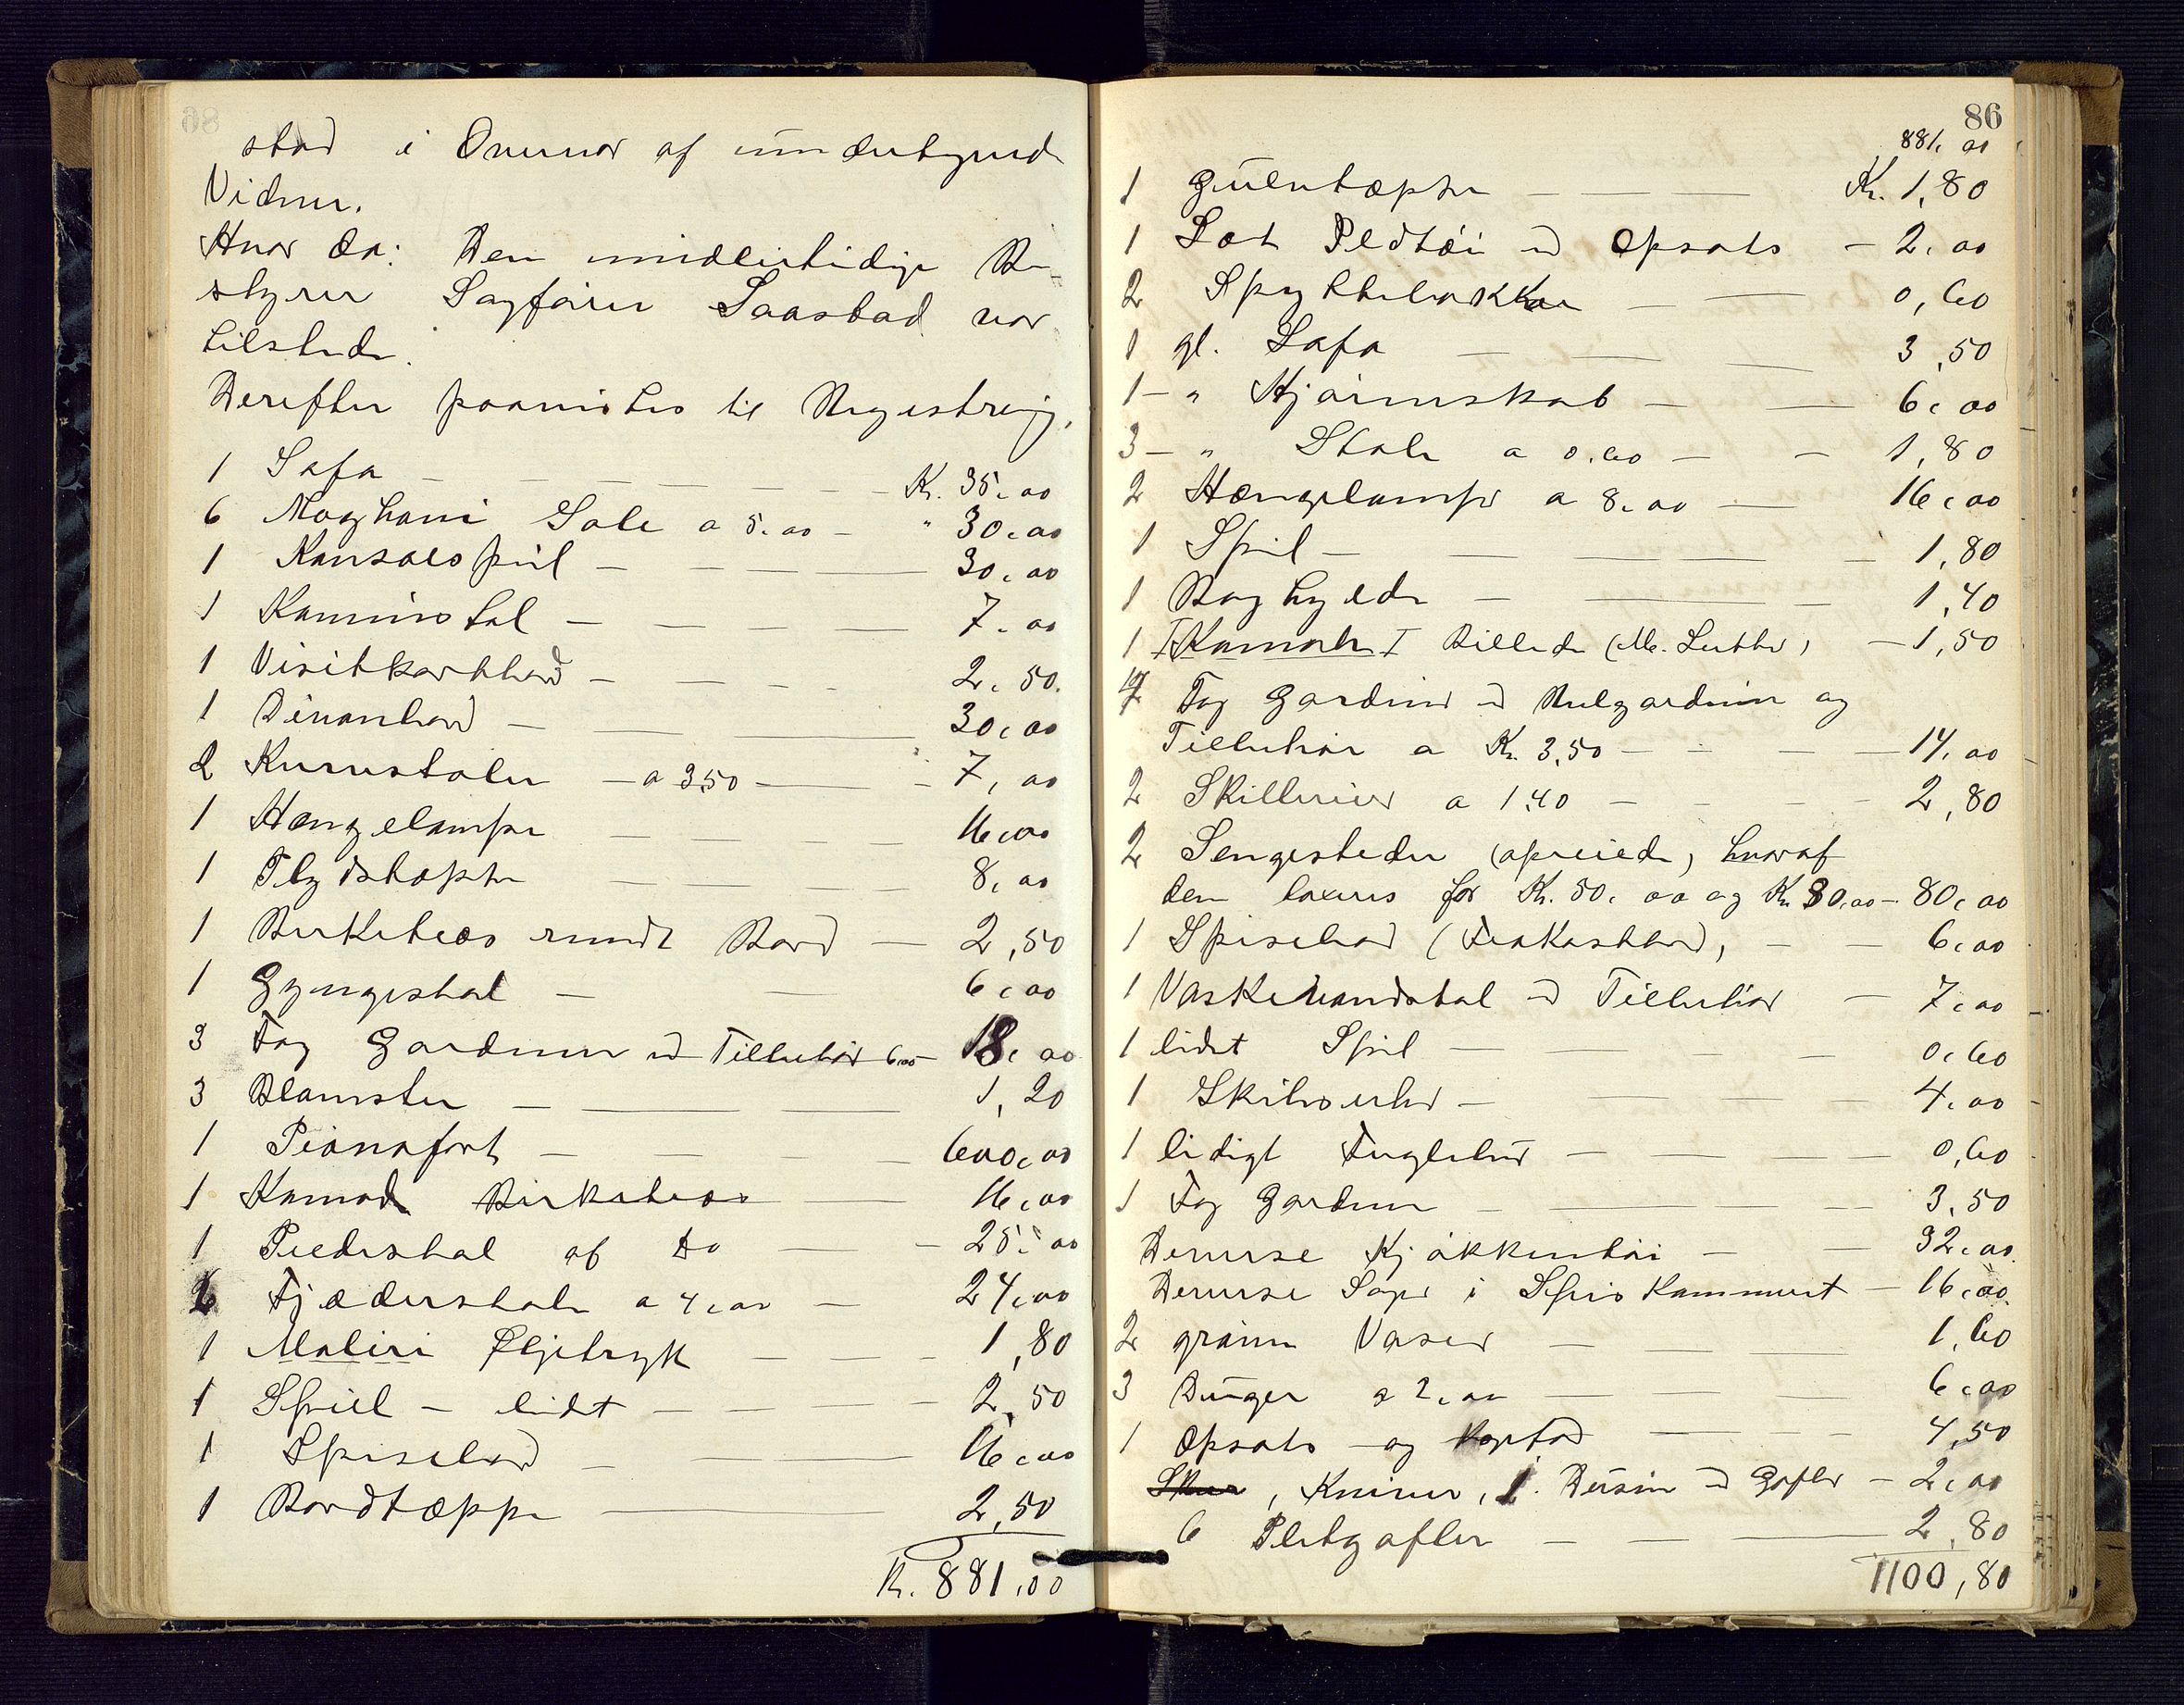 stad i Overvær af undertegnede
Vidner.
Hvor da: Den midlertidige Be-
styrer Sagfører Saastad var
tilstede.
Derefter paavistes til Registrering,
1 Sofa — Kr. 35,00
6 Moghani Sole a 5.00 — " 30,00
1 Konsolspeil — 30,00
1 Kurvstol — 7,00
1 Visitkortbord — 2,50
1 Divanbord — 30,00
2 Kurvestoler — a 3,50 — 7,00
1 Hængelampe 16,00
1 Plydsteppe 8,00
1 Birketræs rundt Bord — 2,50
1 Gyngestol — 6,00
3 Fag Gardiner md Tilbehør 6,00 — 18,00
3 Blomster — 1,20
1 Pianofort — 600,00
1 Komode Birketræs 16,00
1 Piedestal af do — 25,00
6 Fjæderstole a 4,00 — 24,00
1 Maleri Oljetryk — 1,80
1 Speil — lidet — 2,50
1 Spisebord — 16,00
1 Bordtæppe — 2,50
Kr. 881,00
86
881,00
1 Gulvtæppe — Kr. 1,80
1 Sæt Pledtøi md Opsats — 2,00
2 Spyttebakker — 0,60
1 gl. Sofa — 3,50
1 — " Hjørneskab — 6,00
3 — " Stole a 0,60 — 1,80
2 Hængelamper a 8,00 — 16,00
1 Speil — 1,80
1 Boghylde — 1,40
1 Billede (M. Luther) — 1,50
4 Fag Gardiner md Rulgardiner og
Tilbehør a Kr. 3,50 — 14,00
2 Skillerier a 1,40 — 2,80
2 Sengesteder (opreiede) hvoraf
den taxeres for Kr. 50,00 og Kr. 30,00 — 80,00
1 Spisebord (Frokostbord) — 6,00
1 Vaskevandstol md Tilbehør — 7,00
1 lidet Speil — 0,60
1 4,00
1 ledigt Fuglebur — 0,60
1 Fag Gardiner — 3,50
Diverse Kjøkkentøi — 32,00
Diverse Sager i Spiskammeret — 16,00
2 grønne Vaser — 1,60
3 Duger a 2,00 — 6,00
1 Opsats og — 4,50
, Kniver, 1 Dusin md Gafler — 2,00
6 Pletgafler — 2,80
1100,80